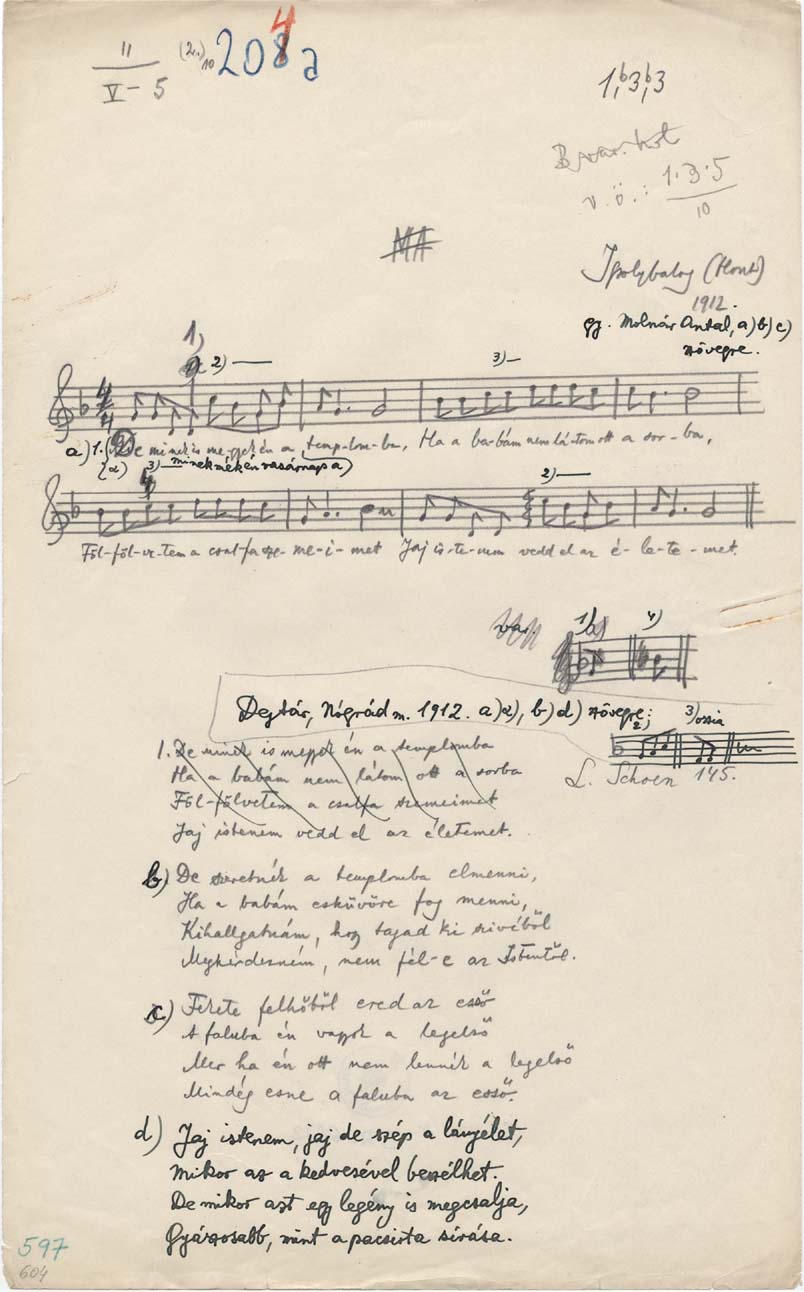 II
V - 5
(2.) 10
208a
4
1, b3, b3
B var. kot
v. ö.: 1.3.5
10
MA
Ipolybalog (Hont)
1912.
gy. Molnár Antal, a) b) c)
szövegre.
1)
2)
3)
a) 1. De minek is me-gyek én a temp-lom-ba, Ha a ba-bám nem lá-tom ott a sor-ba,
α) 3) minek mék én vasárnap a)
2)
Föl-föl-ve-tem a csal-fa sze-me-i-met Jaj is-te-nem vedd el az é-le-te-met.
var.
1)
4)
Dejtár, Nógrád m. 1912. a) α), b) d) szövegre;
2)
3) ossia
L. Schoen 145.
1. De minek is megyek én a templomba
Ha a babám nem látom ott a sorba
Föl-fölvetem a csalfa szemeimet
Jaj istenem vedd el az életemet.
b) De szeretnék a templomba elmenni,
Ha a babám esküvőre fog menni,
Kihallgatnám, hogy tagad ki szivéből
Megkérdezném, nem fél-e az Istentől.
c) Fekete felhőből ered az eső
A faluba én vagyok a legelső
Mer ha én ott nem lennék a legelső
Mindég esne a faluba az esső.
d) Jaj istenem, jaj de szép a lányélet,
Mikor az a kedvesével beszélhet.
De mikor azt egy legény is megcsalja,
Gyászosabb, mint a pacsirta sírása.
597
604